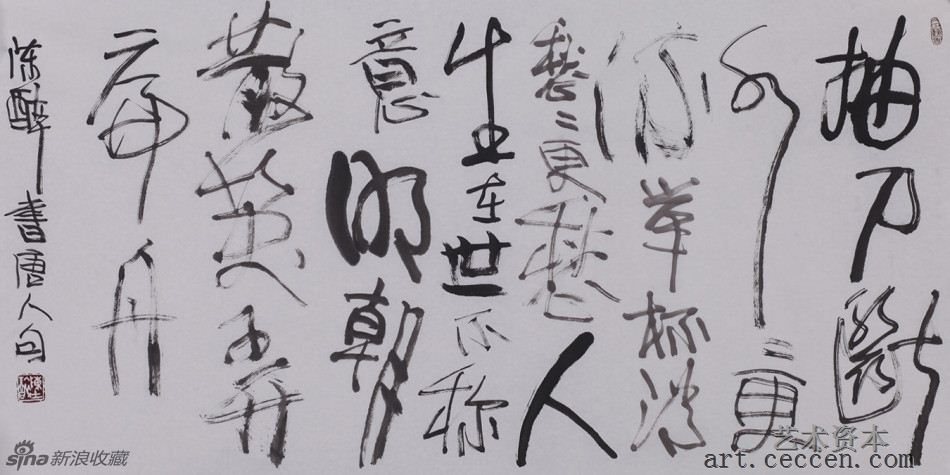 抽刀斷
水々更
流举杯消
愁々更愁人
生在世不称
意明朝
散髮弄
扁舟
陈醉書唐人句
艺术资本
art.ceccen.com
sina新浪收藏